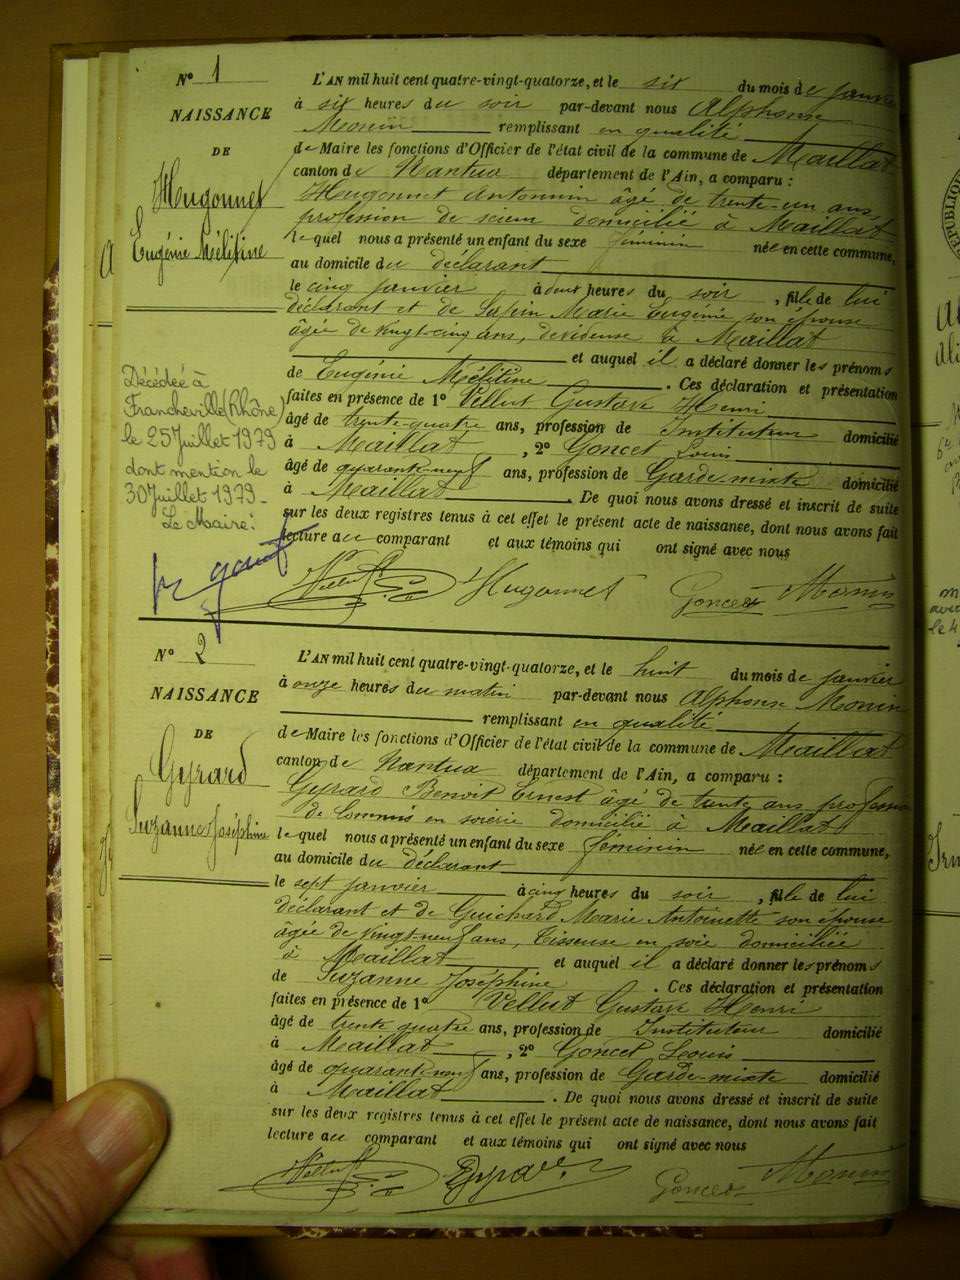 N° 1
NAISSANCE
DE
Hugonnet
Eugénie Mélitine
Décédée à
Francheville (Rhône)
le 25 Juillet 1979
dont mention le
30 Juillet 1979.
Le Maire:
L'AN mil huit cent quatre-vingt-quatorze, et le six du mois de janvier
à six heures du soir par-devant nous Alphonse
Monin remplissant en qualité
de Maire les fonctions d'Officier de l'état civil de la commune de Maillat
canton de Nantua département de l'Ain, a comparu :
Hugonnet Antonnin âgé de trente-un ans,
profession de scieur domicilié à Maillat
lequel nous a présenté un enfant du sexe féminin née en cette commune,
au domicile du déclarant
le cinq janvier à deux heures du soir, fille de lui
déclarant et de Marie Eugénie son épouse
âgée de vingt-cinq ans, devideuse à Maillat
et auquel il a déclaré donner les prénoms
de Eugénie Mélitine. Ces déclaration et présentation
faites en présence de 1° Vellut Gustave Henri
âgé de trente-quatre ans, profession de Instituteur domicilié
à Maillat, 2° Goncet Louis
âgé de quarante-neuf ans, profession de Garde-mixte domicilié
à Maillat. De quoi nous avons dressé et inscrit de suite
sur les deux registres tenus à cet effet le présent acte de naissance, dont nous avons fait
lecture au comparant et aux témoins qui ont signé avec nous
Vellut Hugonnet Goncet Monin
N° 2
NAISSANCE
DE
Gyrard
Suzanne Joséphine
L'AN mil huit cent quatre-vingt-quatorze, et le huit du mois de janvier
à onze heures du matin par-devant nous Alphonse Monin
remplissant en qualité
de Maire les fonctions d'Officier de l'état civil de la commune de Maillat
canton de Nantua département de l'Ain, a comparu :
Gyrard Benoit Ernest âgé de trente ans profession
de Commis en soierie domicilié à Maillat
lequel nous a présenté un enfant du sexe féminin née en cette commune,
au domicile du déclarant
le sept janvier à cinq heures du soir, fille de lui
déclarant et de Guichard Marie Antoinette son épouse
âgée de vingt-neuf ans, Tisseuse en soie domiciliée
à Maillat et auquel il a déclaré donner les prénoms
de Suzanne Joséphine. Ces déclaration et présentation
faites en présence de 1° Vellut Gustave Henri
âgé de trente quatre ans, profession de Instituteur domicilié
à Maillat, 2° Goncet Louis
âgé de quarante-neuf ans, profession de Garde-mixte domicilié
à Maillat. De quoi nous avons dressé et inscrit de suite
sur les deux registres tenus à cet effet le présent acte de naissance, dont nous avons fait
lecture au comparant et aux témoins qui ont signé avec nous
Vellut Gyrard Goncet Monin